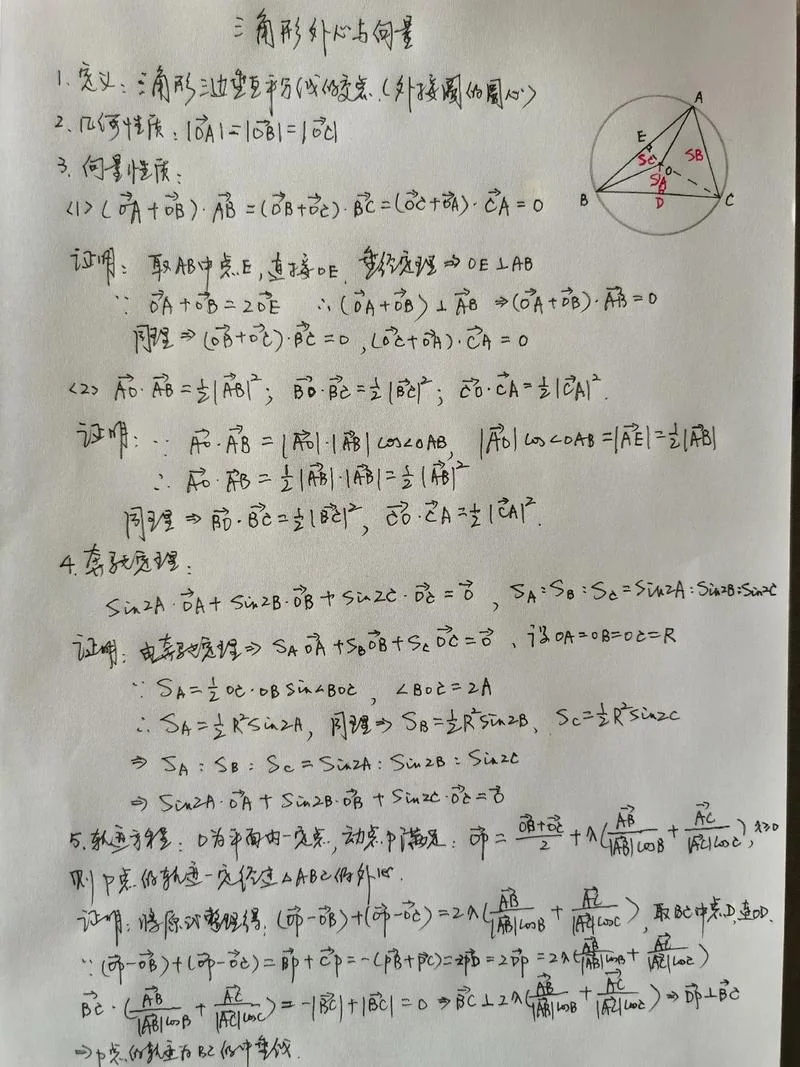 三角形外心与向量
1. 定义：三角形三边垂直平分线的交点.（外接圆的圆心）
2. 几何性质：|$\vec{OA}$|=|$\vec{OB}$|=|$\vec{OC}$|
3. 向量性质：
<1> ($\vec{OA}$+$\vec{OB}$)·$\vec{AB}$=($\vec{OB}$+$\vec{OC}$)·$\vec{BC}$=($\vec{OC}$+$\vec{OA}$)·$\vec{CA}$=0
证明：取AB中点E，连接OE，垂径定理⇒OE⊥AB
∵ $\vec{OA}$+$\vec{OB}$=2$\vec{OE}$ ∴($\vec{OA}$+$\vec{OB}$)⊥$\vec{AB}$ ⇒($\vec{OA}$+$\vec{OB}$)·$\vec{AB}$=0
同理⇒($\vec{OB}$+$\vec{OC}$)·$\vec{BC}$=0，($\vec{OC}$+$\vec{OA}$)·$\vec{CA}$=0
<2> $\vec{AO}$·$\vec{AB}$=½|$\vec{AB}$|²；$\vec{BO}$·$\vec{BC}$=½|$\vec{BC}$|²；$\vec{CO}$·$\vec{CA}$=½|$\vec{CA}$|².
证明：∵ $\vec{AO}$·$\vec{AB}$=|$\vec{AO}$|·|$\vec{AB}$|cos∠OAB，|$\vec{AO}$|cos∠OAB=|$\vec{AE}$|=½|$\vec{AB}$|
∴ $\vec{AO}$·$\vec{AB}$=½|$\vec{AB}$|·|$\vec{AB}$|=½|$\vec{AB}$|²
同理⇒$\vec{BO}$·$\vec{BC}$=½|$\vec{BC}$|²，$\vec{CO}$·$\vec{CA}$=½|$\vec{CA}$|².
4. 奔驰定理：
sin2A·$\vec{OA}$+sin2B·$\vec{OB}$+sin2C·$\vec{OC}$=$\vec{0}$，S_A:S_B:S_C=sin2A:sin2B:sin2C
证明：由奔驰定理⇒S_A$\vec{OA}$+S_B$\vec{OB}$+S_C$\vec{OC}$=$\vec{0}$，设OA=OB=OC=R
∵ S_A=½OC·OB sin∠BOC，∠BOC=2A
∴ S_A=½R²sin2A，同理⇒S_B=½R²sin2B、S_C=½R²sin2C
⇒ S_A:S_B:S_C=sin2A:sin2B:sin2C
⇒ sin2A·$\vec{OA}$+sin2B·$\vec{OB}$+sin2C·$\vec{OC}$=$\vec{0}$
5. 轨迹方程：O为平面内一定点，动点P满足：$\vec{OP}=\frac{\vec{OB}+\vec{OC}}{2}+λ(\frac{\vec{AB}}{|\vec{AB}|cosB}+\frac{\vec{AC}}{|\vec{AC}|cosC})$，λ≥0
则P点的轨迹一定经过△ABC的外心.
证明：将原式整理得：$(\vec{OP}-\vec{OB})+(\vec{OP}-\vec{OC})=2λ(\frac{\vec{AB}}{|\vec{AB}|cosB}+\frac{\vec{AC}}{|\vec{AC}|cosC})$，取BC中点D，连OD.
∵ $(\vec{OP}-\vec{OB})+(\vec{OP}-\vec{OC})=\vec{BP}+\vec{CP}=-(\vec{PB}+\vec{PC})=-2\vec{PD}=2\vec{DP}=2λ(\frac{\vec{AB}}{|\vec{AB}|cosB}+\frac{\vec{AC}}{|\vec{AC}|cosC})$
$\vec{BC}·(\frac{\vec{AB}}{|\vec{AB}|cosB}+\frac{\vec{AC}}{|\vec{AC}|cosC})=-|\vec{BC}|+|\vec{BC}|=0⇒\vec{BC}⊥2λ(\frac{\vec{AB}}{|\vec{AB}|cosB}+\frac{\vec{AC}}{|\vec{AC}|cosC})⇒\vec{DP}⊥\vec{BC}$
⇒P点的轨迹为BC的中垂线.
A
E
S_C
S_B
O
S_A
B
D
C